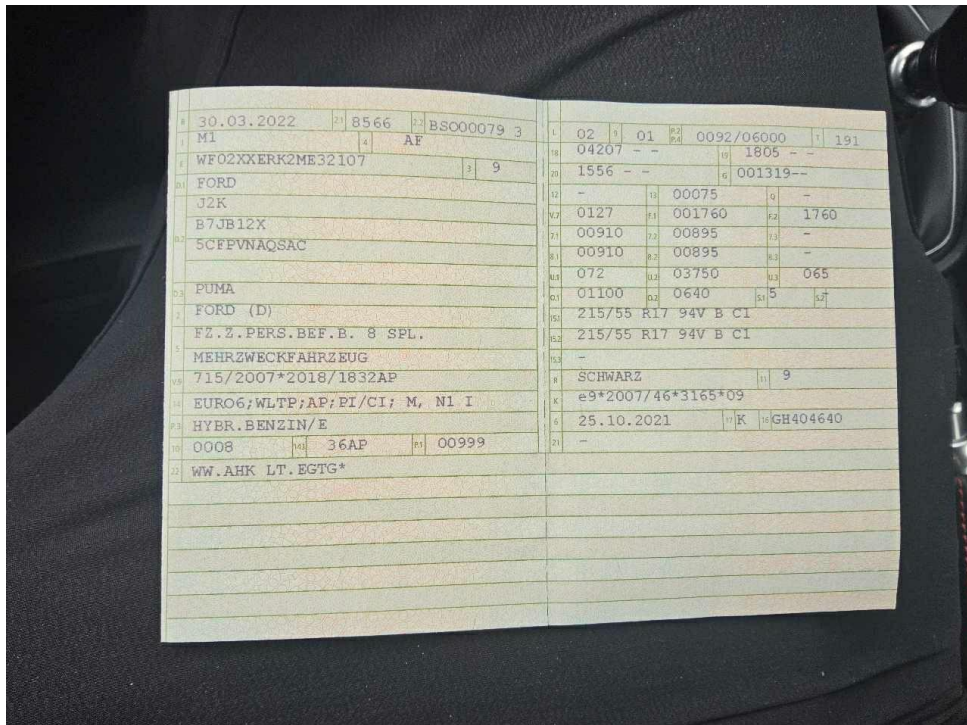 B 30.03.2022 2.1 8566 2.2 BSO00079 3
J M1 4 AF
E WF02XXERK2ME32107 3 9
D.1 FORD
J2K
D.2 B7JB12X
5CFPVNAQSAC
D.3 PUMA
2 FORD (D)
5 FZ.Z.PERS.BEF.B. 8 SPL.
MEHRZWECKFAHRZEUG
V.9 715/2007*2018/1832AP
14 EURO6;WLTP;AP;PI/CI; M, N1 I
P.3 HYBR.BENZIN/E
10 0008 14.1 36AP P.1 00999
22 WW.AHK LT.EGTG*
L 02 9 01 P.2 P.4 0092/06000 T 191
18 04207 - - 19 1805 - -
20 1556 - - G 001319--
12 - 13 00075 Q -
V.7 0127 F.1 001760 F.2 1760
7.1 00910 7.2 00895 7.3 -
8.1 00910 8.2 00895 8.3 -
U.1 072 U.2 03750 U.3 065
O.1 01100 O.2 0640 S.1 5 S.2 -
15.1 215/55 R17 94V B C1
15.2 215/55 R17 94V B C1
15.3 -
R SCHWARZ 11 9
K e9*2007/46*3165*09
6 25.10.2021 17 K 16 GH404640
21 -